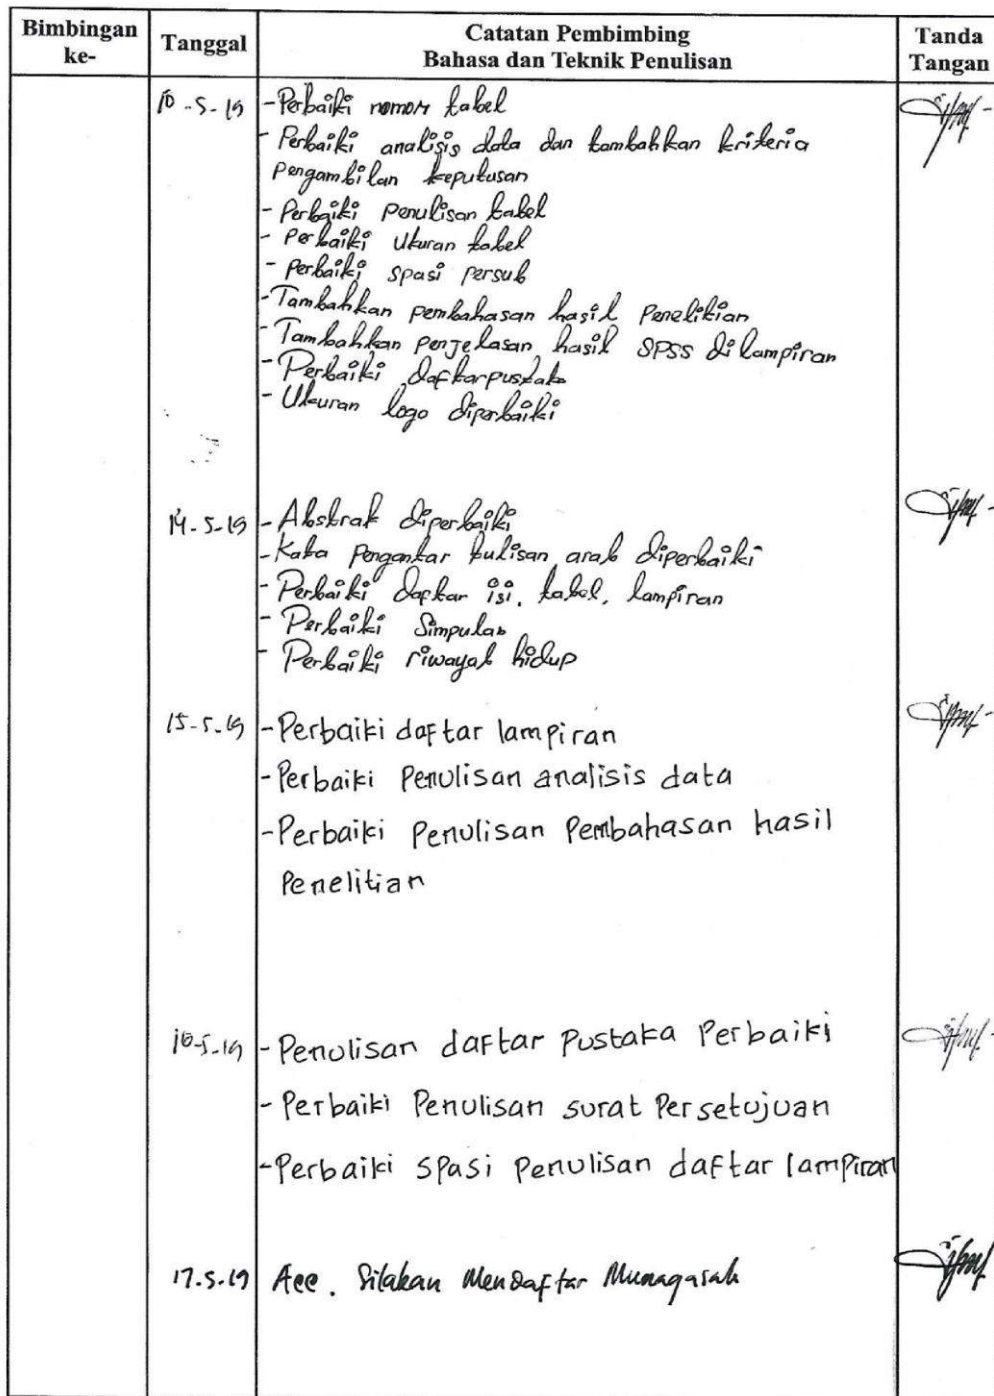 Bimbingan ke-
Tanggal
Catatan Pembimbing
Bahasa dan Teknik Penulisan
Tanda Tangan
10-5-19
- Perbaiki nomor tabel
- Perbaiki analisis data dan tambahkan kriteria
pengambilan keputusan
- Perbaiki penulisan tabel
- Perbaiki ukuran tabel
- Perbaiki spasi persub
- Tambahkan pembahasan hasil penelitian
- Tambahkan penjelasan hasil SPSS di lampiran
- Perbaiki daftar pustaka
- Ukuran logo diperbaiki
14-5-19
- Abstrak diperbaiki
- Kata pengantar tulisan arab diperbaiki
- Perbaiki daftar isi, tabel, lampiran
- Perbaiki Simpulan
- Perbaiki riwayat hidup
15-5-19
- Perbaiki daftar lampiran
- Perbaiki Penulisan analisis data
- Perbaiki Penulisan Pembahasan hasil
Penelitian
16-5-19
- Penulisan daftar Pustaka Perbaiki
- Perbaiki Penulisan surat Persetujuan
- Perbaiki spasi penulisan daftar lampiran
17.5.19
Acc. Silakan Mendaftar Munaqasah